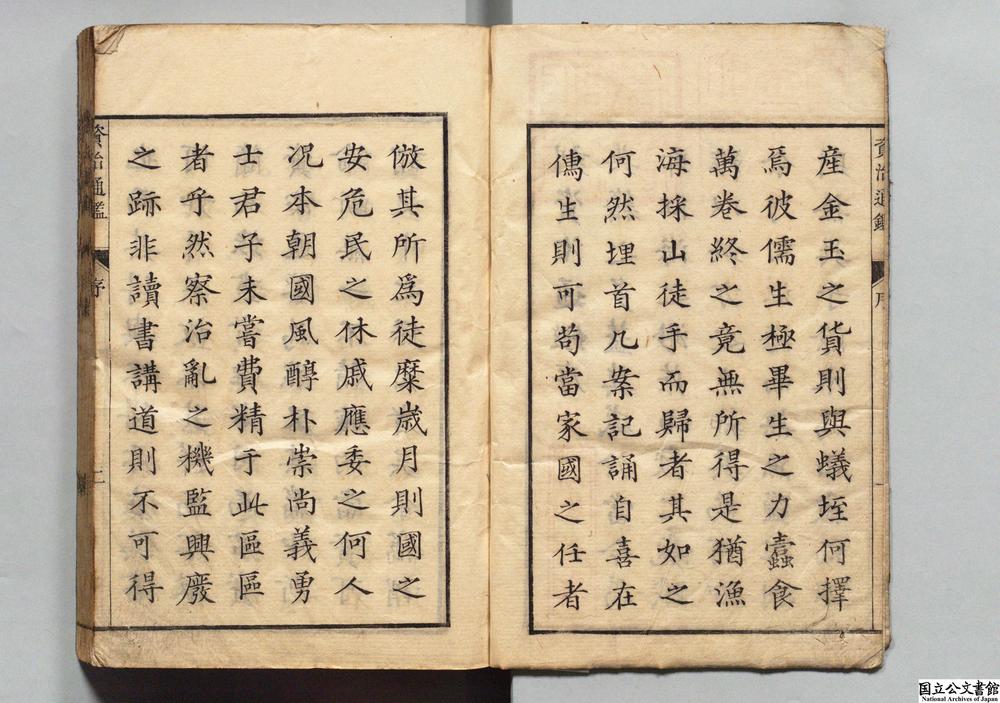 産金玉之貨則與蟻垤何擇
焉彼儒生極畢生之力蠧食
萬卷終之竟無所得是猶漁
海採山徒手而歸者其如之
何然埋首几案記誦自喜在
儁生則可苟當家國之任者
倣其所爲徒糜歳月則國之
安危民之休戚應委之何人
况本朝國風醇朴崇尚義勇
士君子未嘗費精于此區區
者乎然察治亂之機監興廢
之跡非讀書講道則不可得
資治通鑑
序
二
資治通鑑
序
国立公文書館
National Archives of Japan